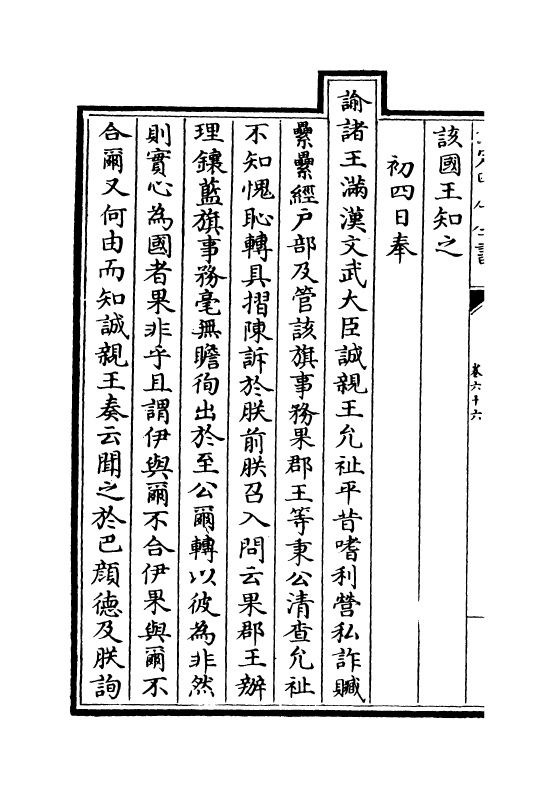 卷六十六
該國王知之
初四日奉
諭諸王滿漢文武大臣誠親王允祉平昔嗜利營私詐贓
纍纍經户部及管該旗事務果郡王等秉公清查允祉
不知愧恥轉具摺陳訴於朕前朕召入問云果郡王辦
理鑲藍旗事務毫無瞻徇出於至公爾轉以彼為非然
則實心為國者果非乎且謂伊與爾不合伊果與爾不
合爾又何由而知誠親王奏云聞之於巴顔德及朕詢